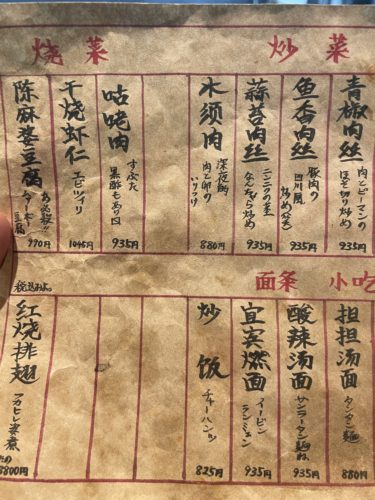 炒菜
青椒肉丝
肉とピーマンの
ほそ切り炒め
935円
鱼香肉丝
豚肉の
四川風
炒め
935円
蒜苔肉丝
ニンニクの茎
なんたら炒め
935円
木须肉
深夜的
肉と卵の
いりつけ
880円
烧菜
咕咾肉
すぶた
黒酢もあり〼
935円
干烧虾仁
エビツィリ
1045円
陈麻婆豆腐
あ必殺!!
マーボー
豆腐
990円
面条 小吃
担担汤面
タンタン麺
880円
酸辣汤面
サンラータン麺ね。
935円
宜宾燃面
イービン
ランミェン
935円
炒饭
チャーハンッ
825円
税込みよ。
红烧排翅
フカヒレ姿煮
8800円